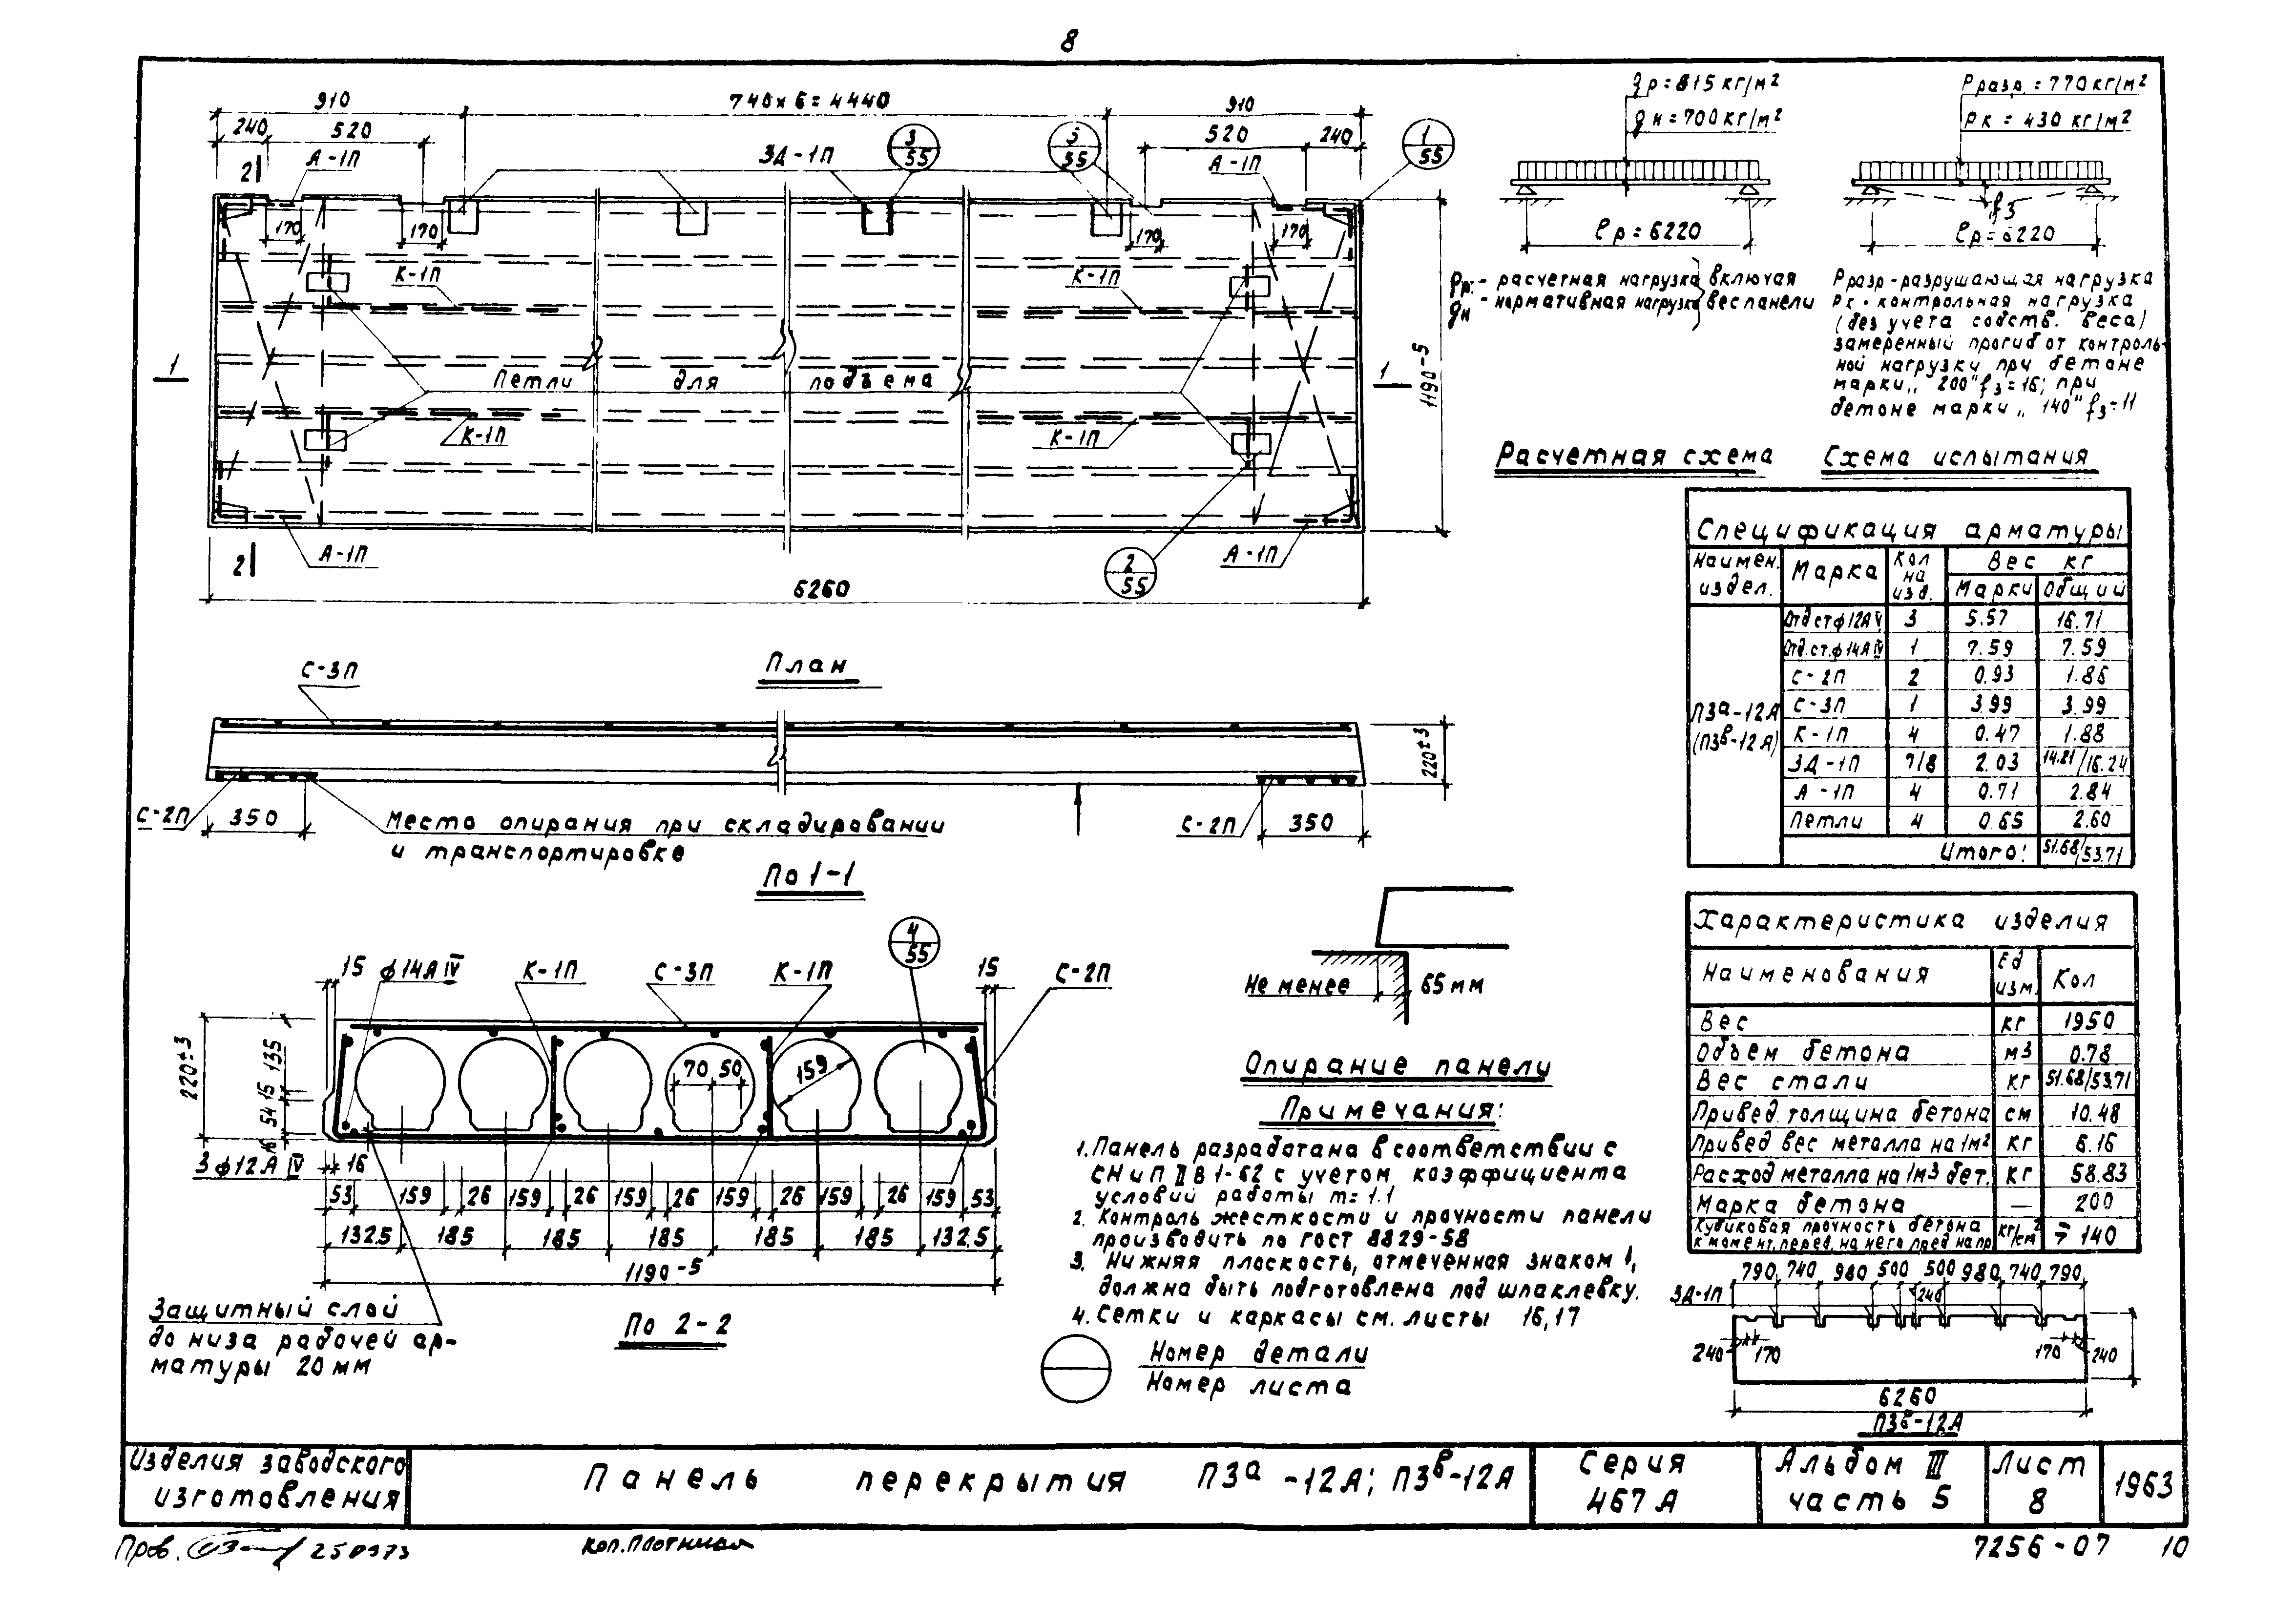 8
910
740х6=4440
910
240
520
520
240
А-1П
ЗД-1П
3
55
5
55
А-1П
1
55
2
170
170
170
170
К-1П
К-1П
1
Петли для подъема
1
1190-5
К-1П
К-1П
2
А-1П
2
55
А-1П
6260
План
С-3П
220±3
С-2П
350
Место опирания при складировании
и транспортировке
С-2П
350
По 1-1
4
55
15
ф14А IV
К-1П
С-3П
К-1П
15
С-2П
220±3
135
15
54
16
70
50
159
3ф12А IV
16
53
159
26
159
26
159
26
159
26
159
26
159
53
132.5
185
185
185
185
185
132.5
1190-5
Защитный слой
до низа рабочей ар-
матуры 20мм
По 2-2
Не менее
65мм
Опирание панели
Примечания:
1. Панель разработана в соответствии с
СНиП II В 1-62 с учетом коэффициента
условий работы m=1.1
2. Контроль жесткости и прочности панели
производить по ГОСТ 8829-58
3. Нижняя плоскость, отмеченная знаком ↑,
должна быть подготовлена под шпаклевку.
4. Сетки и каркасы см. листы 16,17
Номер детали
Номер листа
gр=815кг/м²
gн=700кг/м²
ℓр=6220
gр.- расчетная нагрузка
gн - нормативная нагрузка
включая
вес панели
Расчетная схема
Рразр.=770кг/м²
Рк = 430кг/м²
f3
ℓр=6220
Рразр-разрушающая нагрузка
Рк-контрольная нагрузка
(без учета собств. веса)
замеренный прогиб от контроль-
ной нагрузки при бетоне
марки „200" f3=16; при
бетоне марки „140" f3=11
Схема испытания
Спецификация арматуры
Наимен. издел.
Марка
Кол на изд.
Вес кг
Марки
Общий
П3а-12А
(П3в-12А)
Отд ст ф12А IV 3 5.57 16.71
Отд.ст.ф14А IV 1 7.59 7.59
С-2П 2 0.93 1.86
С-3П 1 3.99 3.99
К-1П 4 0.47 1.88
ЗД-1П 7/8 2.03 14.21/16.24
А-1П 4 0.71 2.84
Петли 4 0.65 2.60
Итого: 51.68/53.71
Характеристика изделия
Наименования
Ед изм.
Кол
Вес кг 1950
Объем бетона м3 0.78
Вес стали кг 51.68/53.71
Привед. толщина бетона см 10.48
Привед вес металла на 1м² кг 6.16
Расход металла на 1м3 бет. кг 58.83
Марка бетона — 200
Кубиковая прочность бетона
к момент. перед. на него пред напр кг/см² 140
790
740
980
500
500
980
740
790
240
ЗД-1П
240
170
170
240
6260
П3в-12А
Изделия заводского
изготовления
Панель перекрытия П3а-12А; П3в-12А
Серия
467А
Альбом III
часть 5
Лист
8
1963
Пров.
250973
Коп.Плотница
7256-07
10